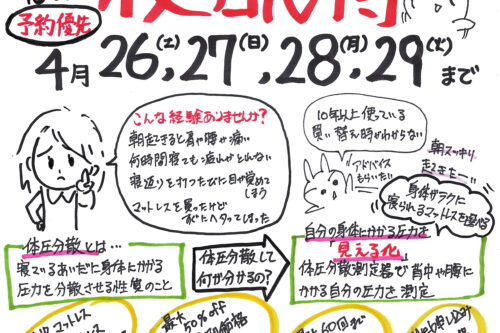 予約優先
4月26(土),27(日),28(月),29(火)まで
こんな経験ありませんか?
朝起きると肩や腰が痛い
何時間寝ても疲れがとれない
寝返りを打つたびに目が覚めて
しまう
マットレスを買ったけど
すぐにヘタってしまった
10年以上使っている
買い替え時がわからない
アドバイス
もらいたい
朝スッキリ
起きたい…
身体がラクに
寝られるマットレスを選べる
体圧分散とは…
寝ているあいだに身体にかかる
圧力を分散させる性質のこと
体圧分散して
何が分かるの?
自分の身体にかかる圧力を
「見える化」
体圧分散測定器で背中や腰に
かかる自分の圧力を測定
マットレス
最大
50%off
40回まで